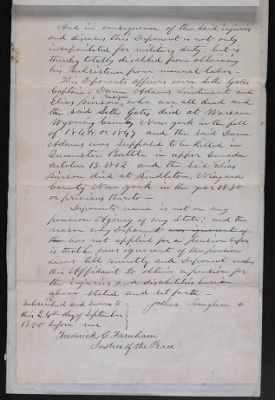 And in consequence of the said injuries
and disease, this Deponent is not only
incapacitated for military duty but is
thereby totally disabled from obtaining
his subsistence from manual labor-
This Deponents officers were Seth Gates
Captain, Adams Lieutenant and
Elias Sinson, who are all dead and
the said Seth Gates died at Warsaw
Wyoming County New York in the fall
of 1846 or 1847 and the said
Adams was supposed to be killed in
Queenston Battle, in upper Canada
October 13. 1812 and the said Elias
Sinson died at Pendleton, Niagara
County New York in the year 1830
or previous thereto-
Deponents name is not on any
pension Agency of any State; and the
reason why Deponent was ignorant of
has not applied for a pension before
is that he was ignorant of the pension
Laws till recently and Deponent makes
this Affidavit to obtain a pension for
the injuries and disabilities
above stated and set forth
Subscribed and sworn to
this 24th day of September
1850 before me
Frederick C Farnham
Justice of the Peace